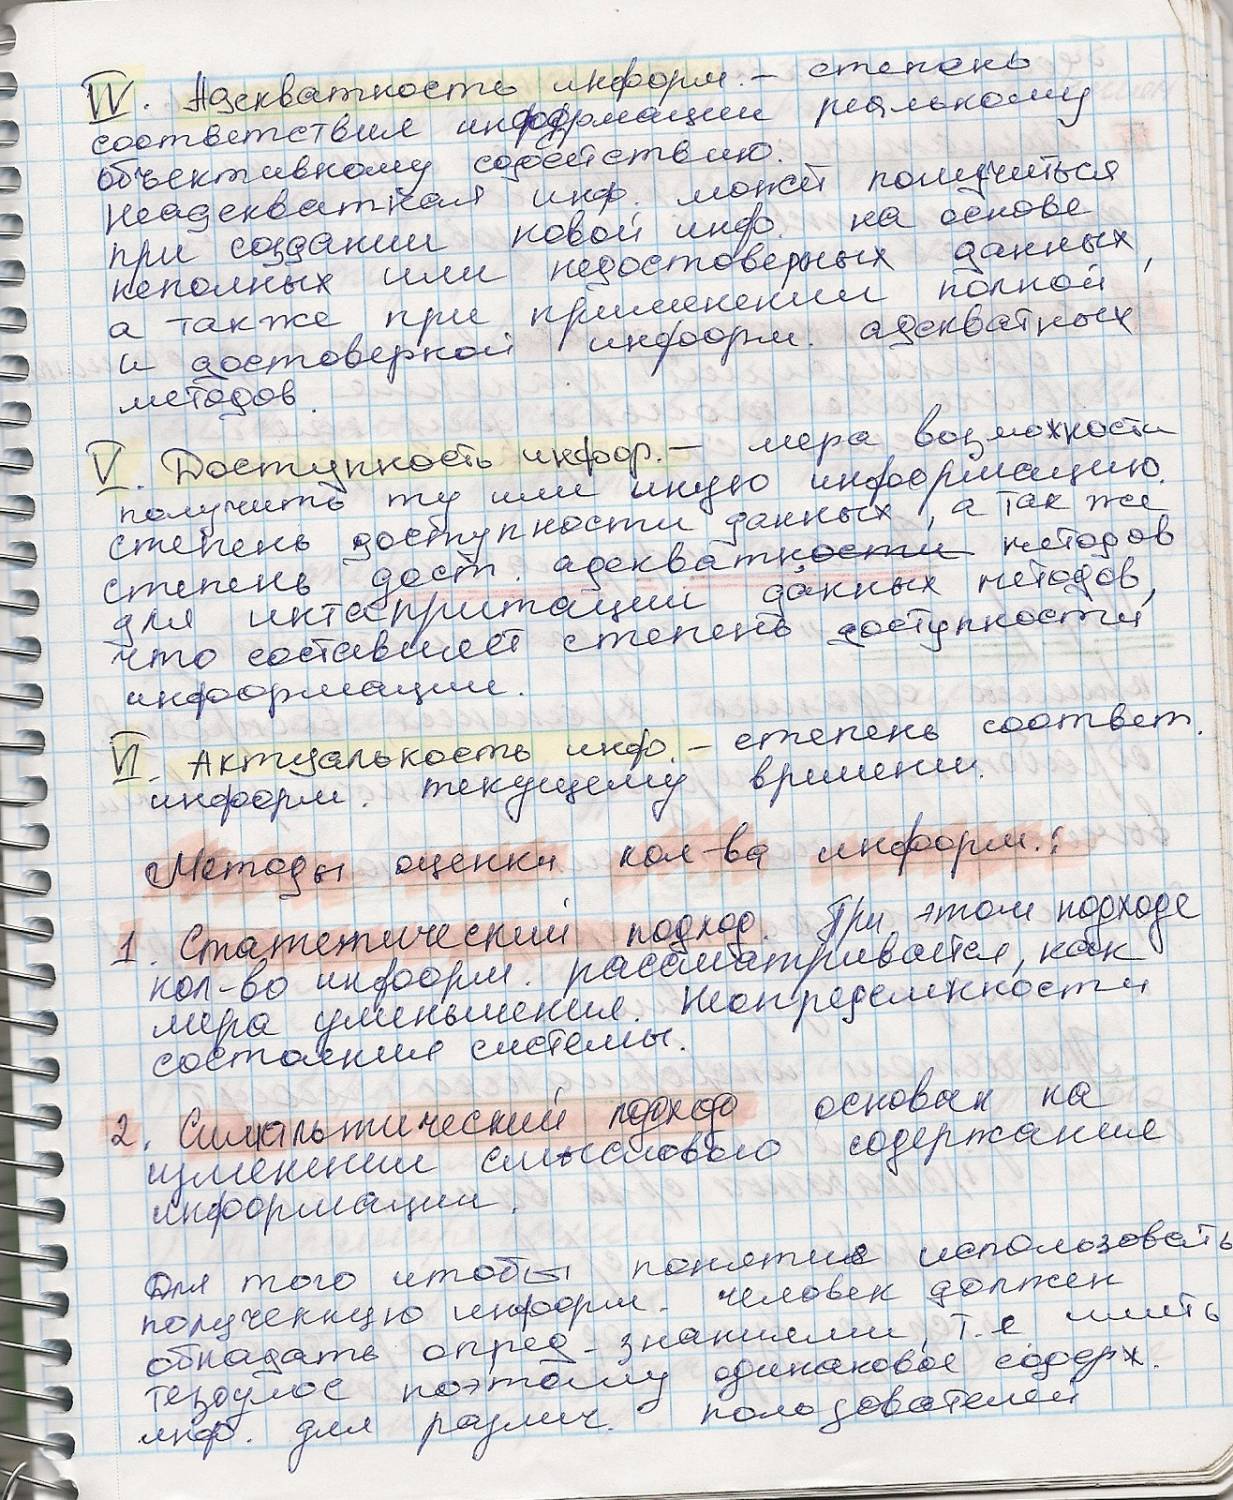 IV. Адекватность информ. – степень
соответствия информации реальному
объективному содействию.
Неадекватная инф. может получиться
при создании новой инфо. на основе
неполных или недостоверных данных,
а также при применении полной
и достоверной информ. адекватных
методов.
V. Доступность инфор. – мера возможности
получить ту или иную информацию.
степень доступности данных, а так же
степень дост. адекватности методов
для интепритации данных методов,
что составляет степень доступности
информации.
VI. Актуальность инфо. – степень соответ.
информ. текущему времени.
Методы оценки кол-ва информ.:
1. Статетический подход. При этом подходе
кол-во информ. рассматривается, как
мера уменьшения. Неопределнности
состояния системы.
2. Симальтический подход основан на
изменении смыслового содержания
информации.
Для того чтобы понятие использовать
полученную информ. человек должен
обладать опред. знаниями, т.е. иметь
тезаулос поэтому одинаковое содерж.
инф. для различ. ползователей